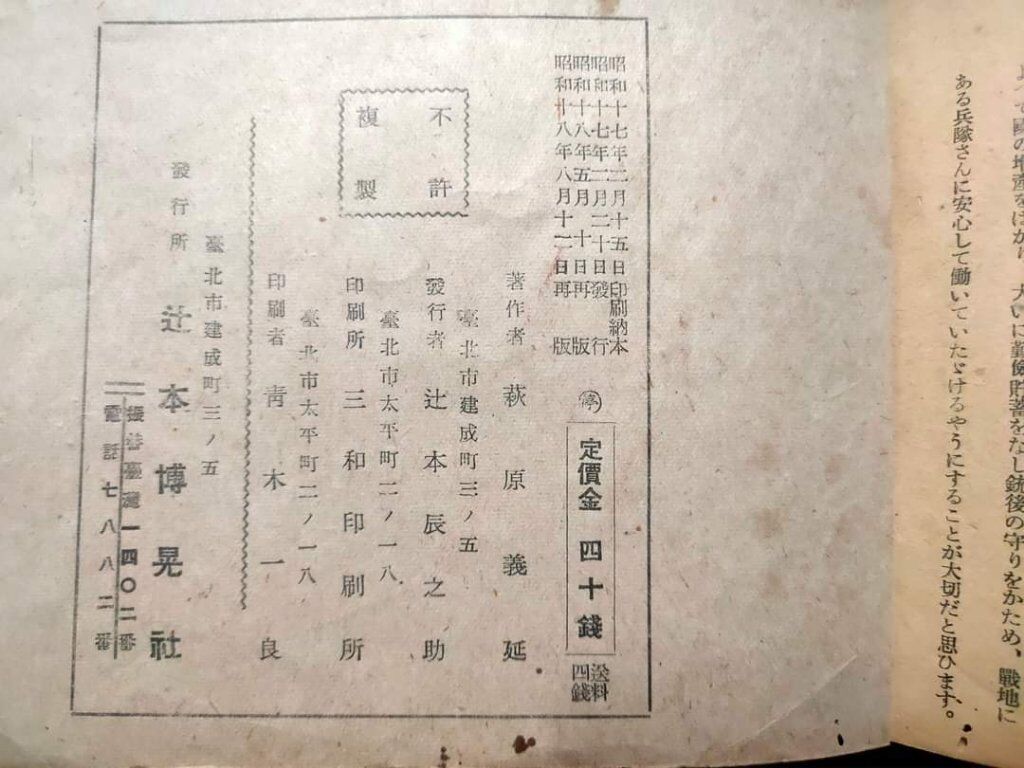 ある兵隊さんに安心して働いていたゞけるやうにすることが大切だと思ひます。
大いに勤儉貯蓄をなし銃後の守りをかため、戰地に
昭和十七年二月十五日印刷納本
昭和十七年二月二十日發行
昭和十八年五月十日再版
昭和十八年八月十二日再版
定價金 四十錢
送料四錢
不許複製
著作者 萩原義延
臺北市建成町三ノ五
發行者 辻本辰之助
臺北市太平町二ノ一八
印刷所 三和印刷所
臺北市太平町二ノ一八
印刷者 靑木一良
臺北市建成町三ノ五
發行所 辻本博晃社
振替臺灣一四〇二番
電話七八八二番